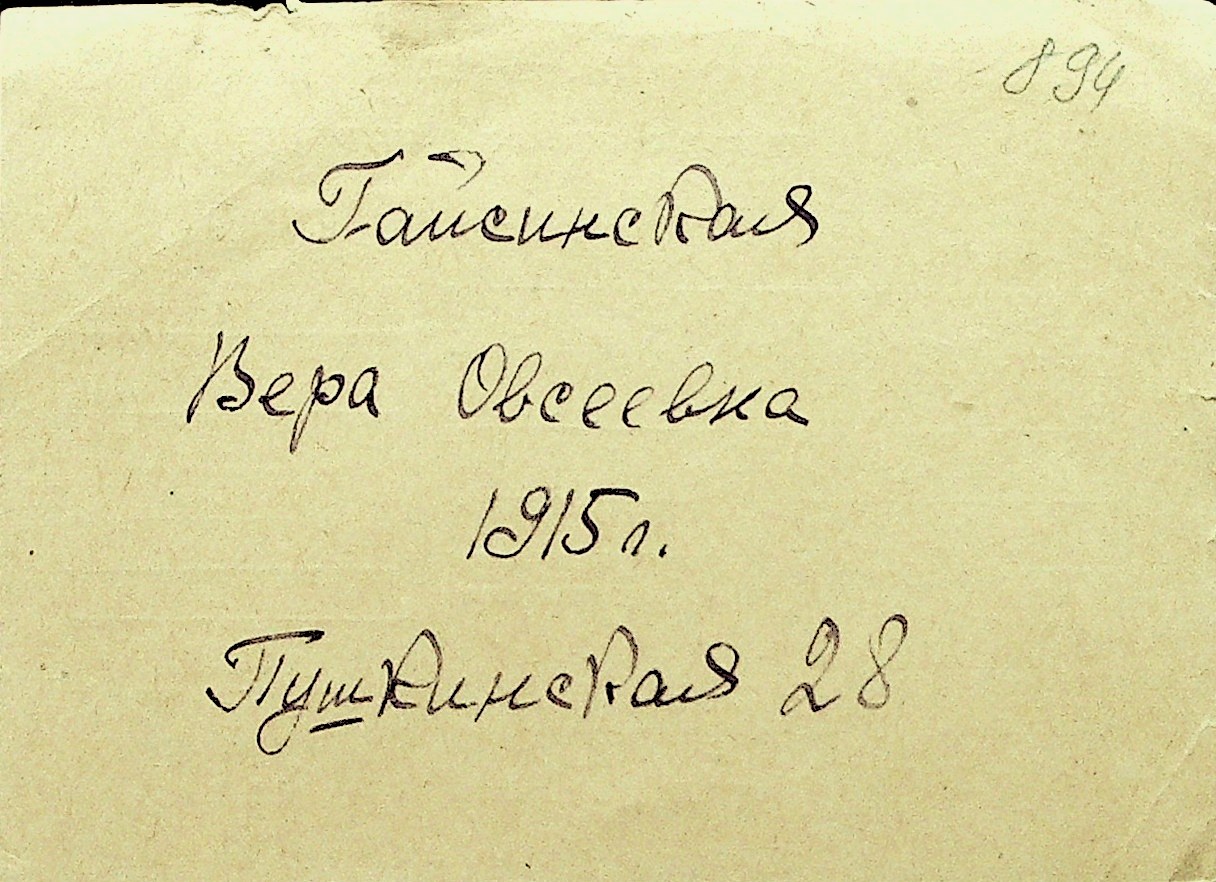 894
Гайсинская
Вера Овсеевна
1915 г.
Пушкинская 28